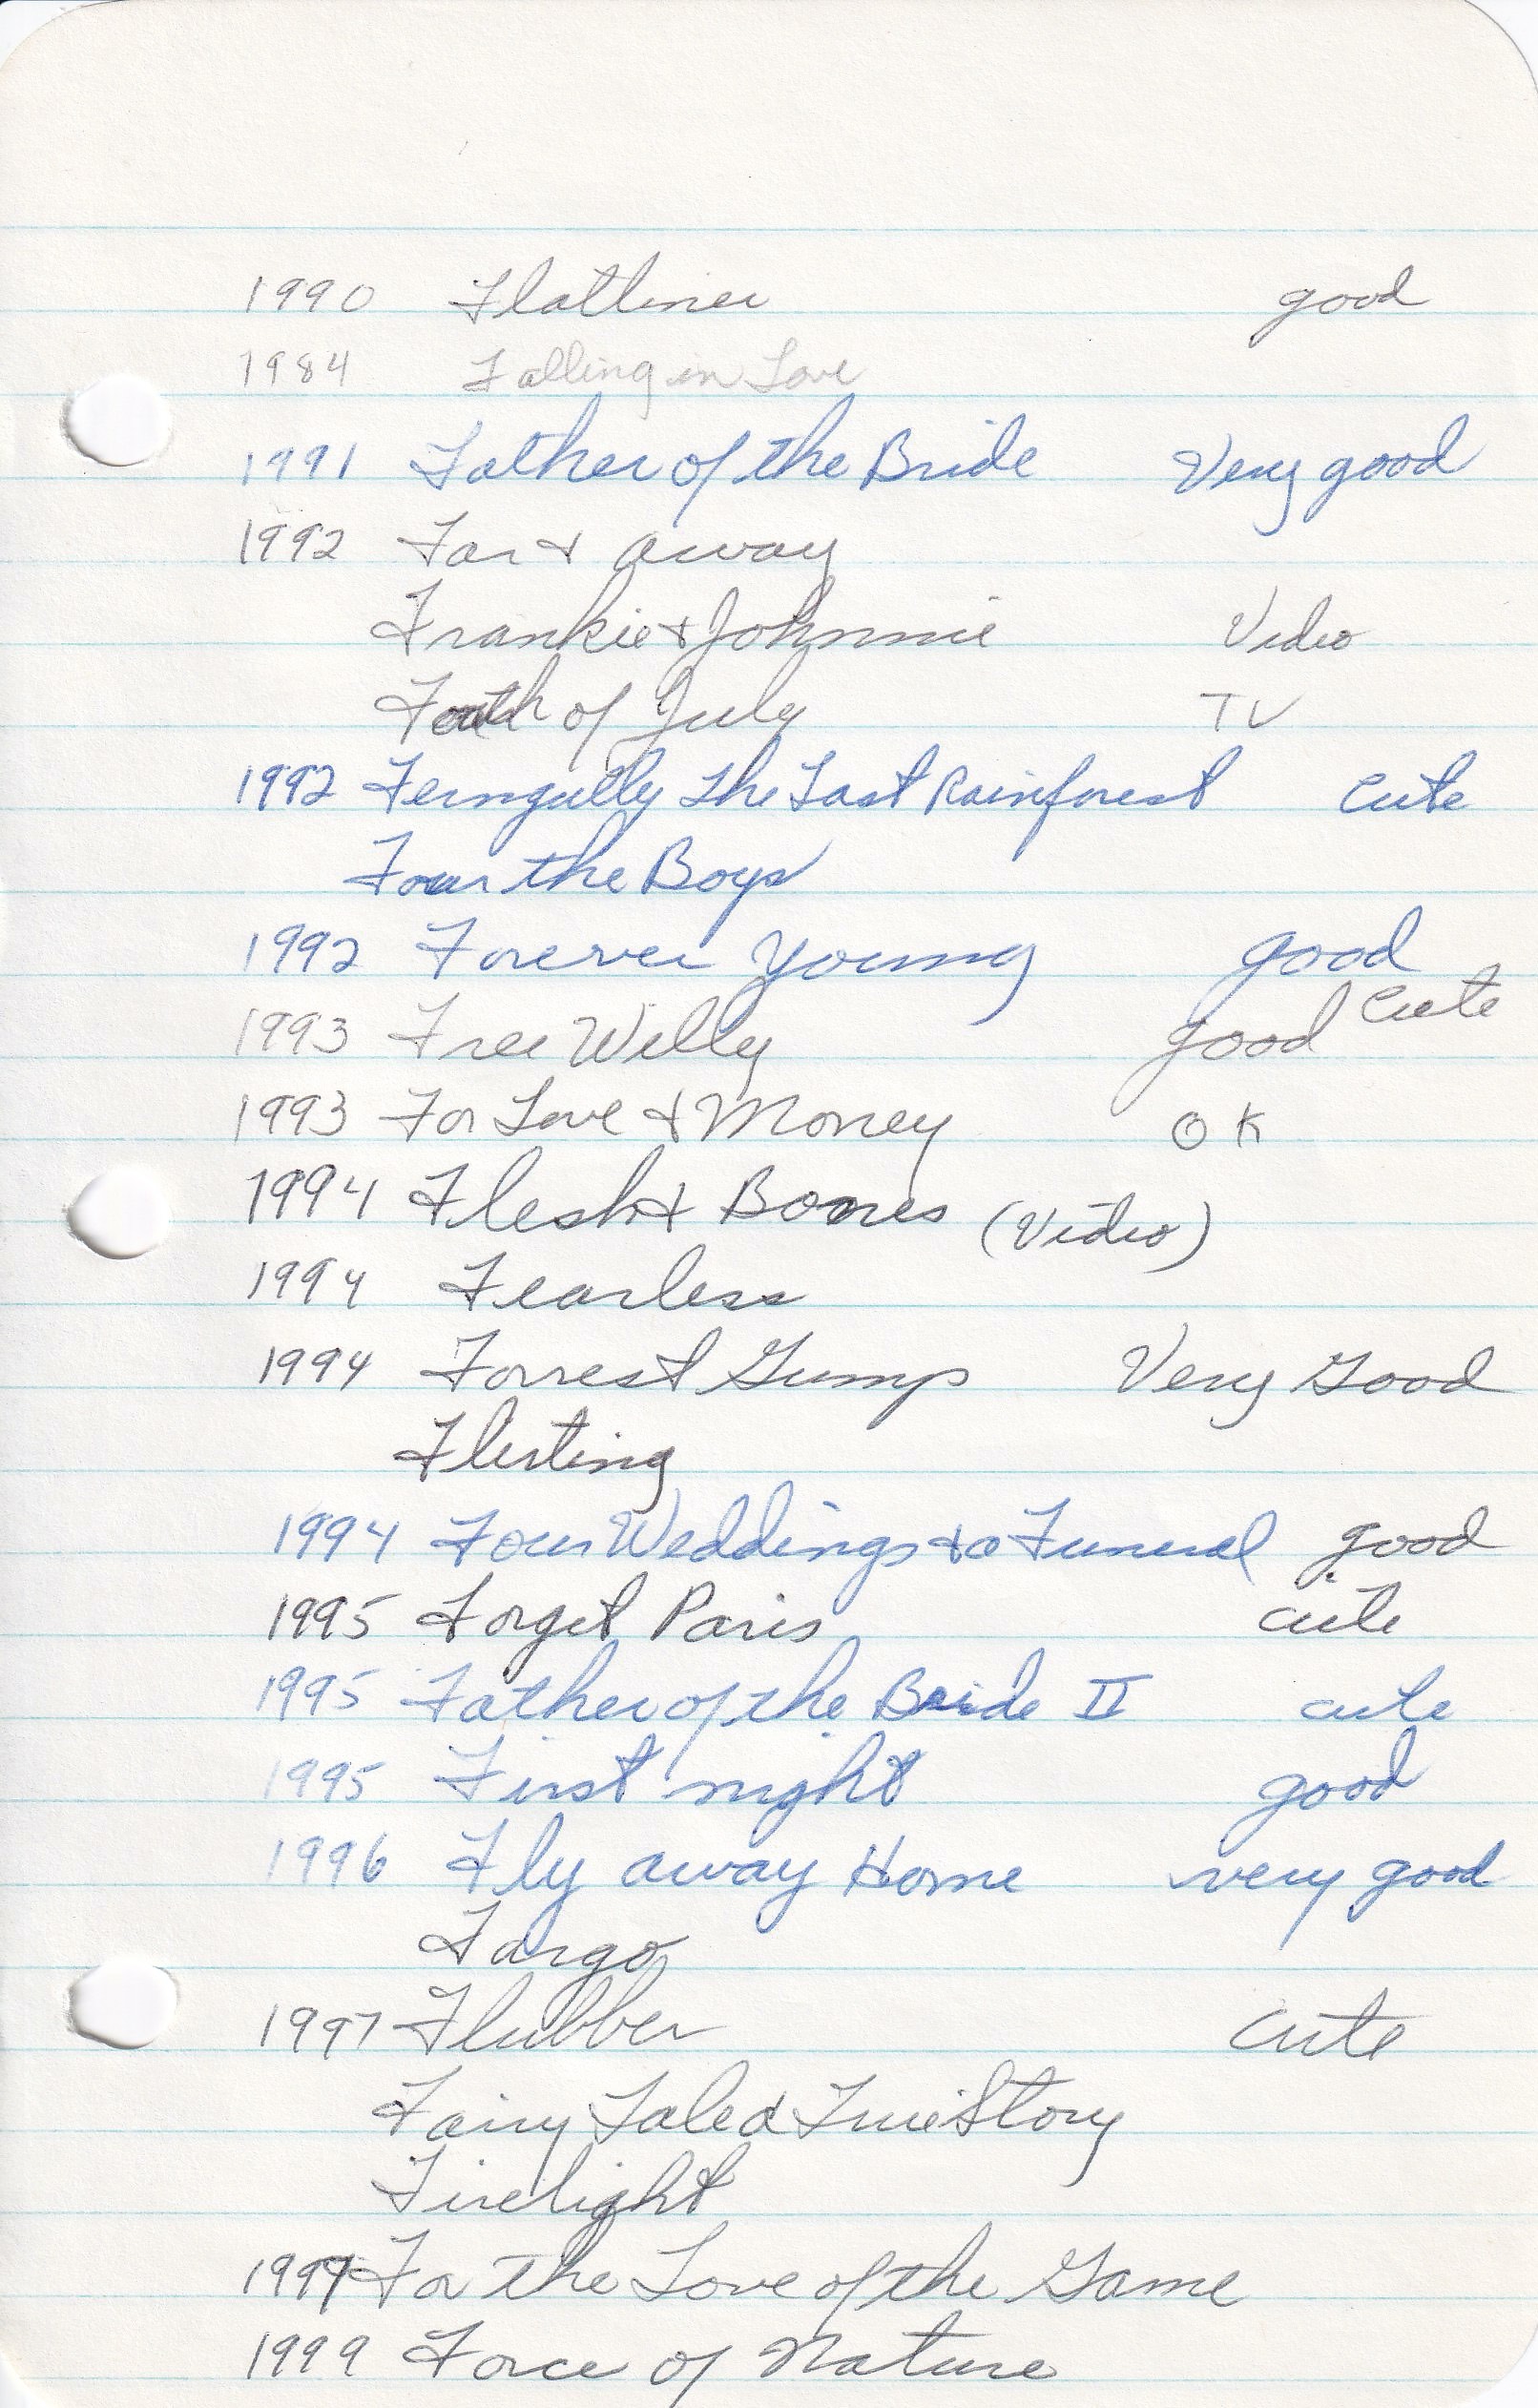 1990 Flatliner good
1984 Falling in Love
1991 Father of the Bride Very good
1992 Far & away
Frankie & Johnnie Video
Fouth of July TV
1992 Ferngully The Last Rainforest Cute
Four the Boys
1992 Forever Young good
1993 Free Willy good Cute
1993 For Love & Money OK
1994 Flesh & Bones (Video)
1994 Fearless
1994 Forrest Gump Very Good
Flirting
1994 Four Weddings & a Funeral good
1995 Forget Paris cute
1995 Father of the Bride II cute
1995 First night good
1996 Fly away Home very good
Fargo
1997 Flubber cute
Fairy Tale a True Story
Firelight
1999 For the Love of the Game
1999 Force of Nature